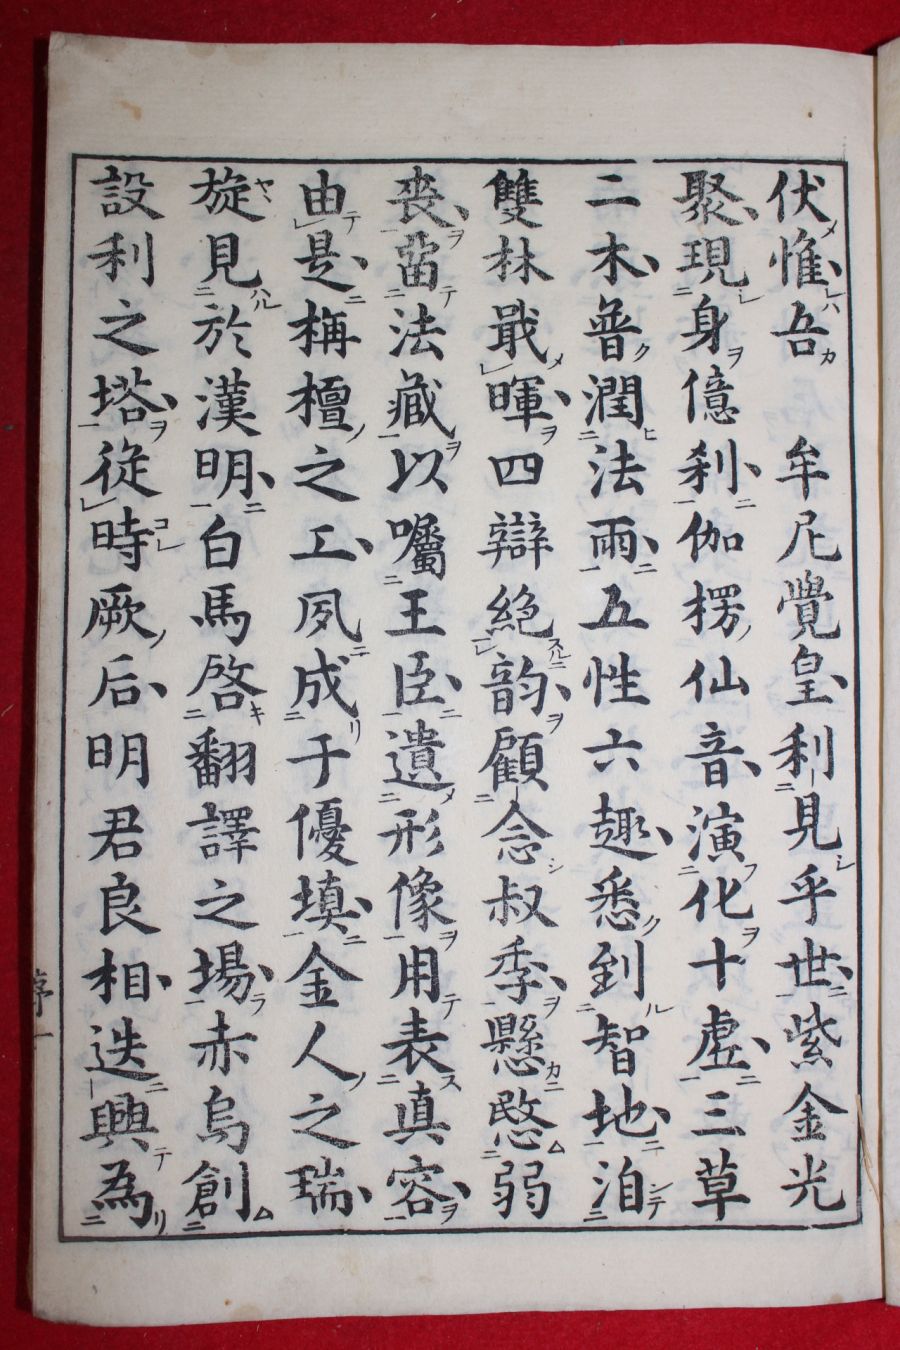 伏惟吾　牟尼覺皇利見乎世紫金光
聚現身億刹伽楞仙音演化十虛三草
二木普潤法雨五性六趣悉到智地洎
雙林戢暉四辯絕韵顧念叔季懸愍弱
喪畱法藏以囑王臣遺形像用表真容
由是栴檀之工夙成于優塡金人之瑞
旋見於漢明白馬啓翻譯之場赤烏創
設利之塔從時厥后明君良相迭興為
序 一